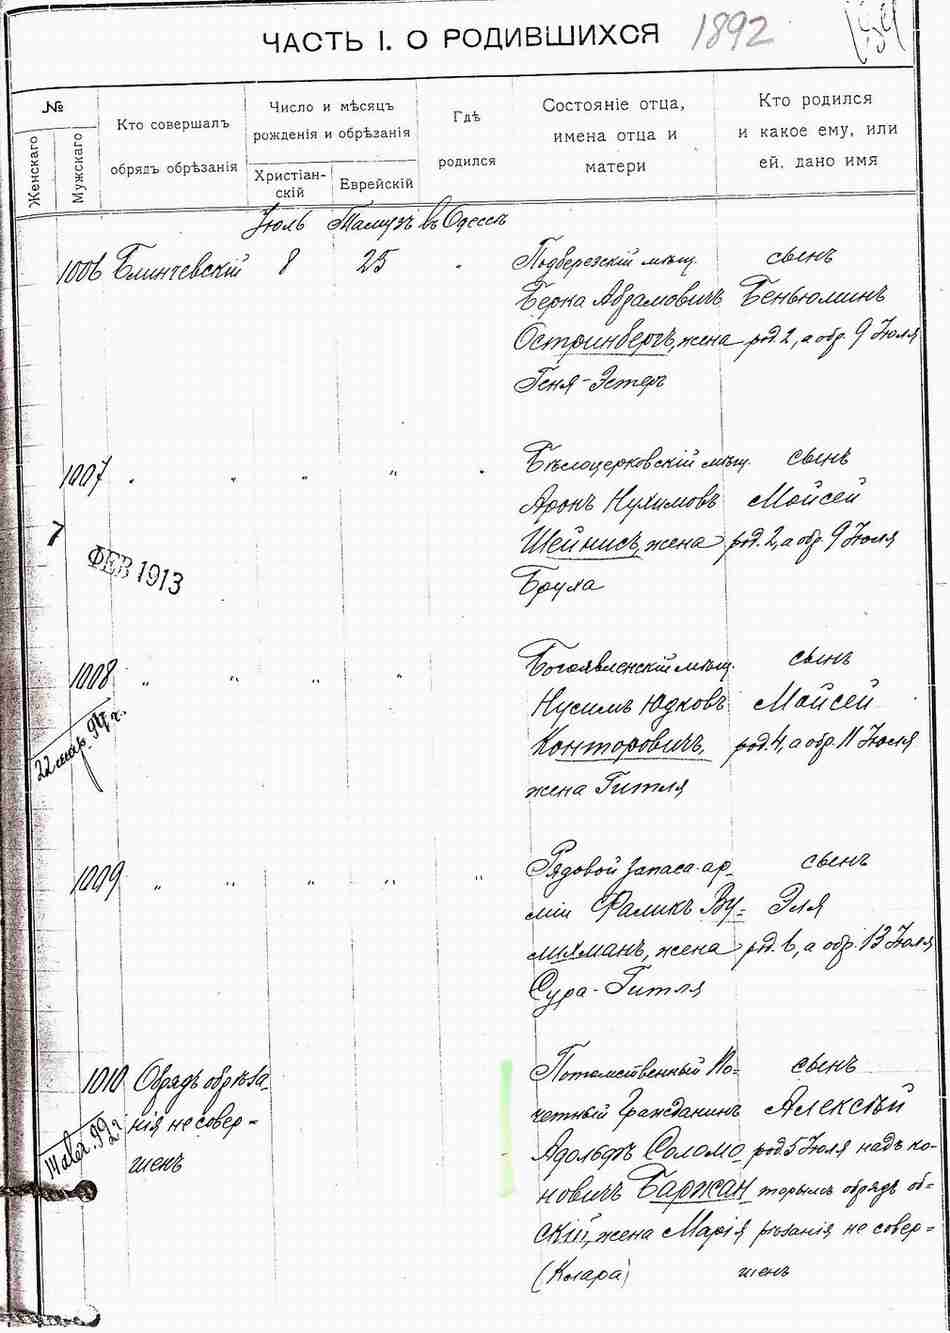 ЧАСТЬ I. О РОДИВШИХСЯ 1892
№
Женскаго
Мужскаго
Кто совершалъ
обрядъ обрѣзанія
Число и мѣсяцъ
рожденія и обрѣзанія
Христіан-
скій
Еврейскій
Гдѣ
родился
Состояніе отца,
имена отца и
матери
Кто родился
и какое ему, или
ей, дано имя
Іюль Тамузъ въ Одессѣ
1006 8 25 " Подберезскій мѣщ. сынъ
Берка Абрамовичъ Беньюминъ
Остринбергъ, жена род. 2, а обр. 9 Іюля
Геня-Эстеръ
1007 " " " " " Бѣлоцерковскій мѣщ. сынъ
Аронъ Нухимовъ Мойсей
Шейнисъ, жена род. 2, а обр. 9 Іюля
Бруха
7
ФЕВ 1913
1008 " " " " Богоявленскій мѣщ. сынъ
Нусимъ Юдковъ Мойсей
Конторовичъ, род. 4, а обр. 11 Іюля
жена Гитля
22 мар.
1009 " " " " " Рядовой запаса ар-
міи Фаликъ Ву- Эля
лихманъ, жена род. 6, а обр. 13 Іюля
Сура-Гитля
сынъ
1010 Обрядъ обрѣза- Потомственный По- сынъ
нія не совер- четный Гражданинъ Алексѣй
шенъ Адольфъ Соломо- род. 5 Іюля надъ ко-
новичъ Баржан- торымъ обрядъ об-
скій, жена Марія рѣзанія не совер-
(Клара) шенъ